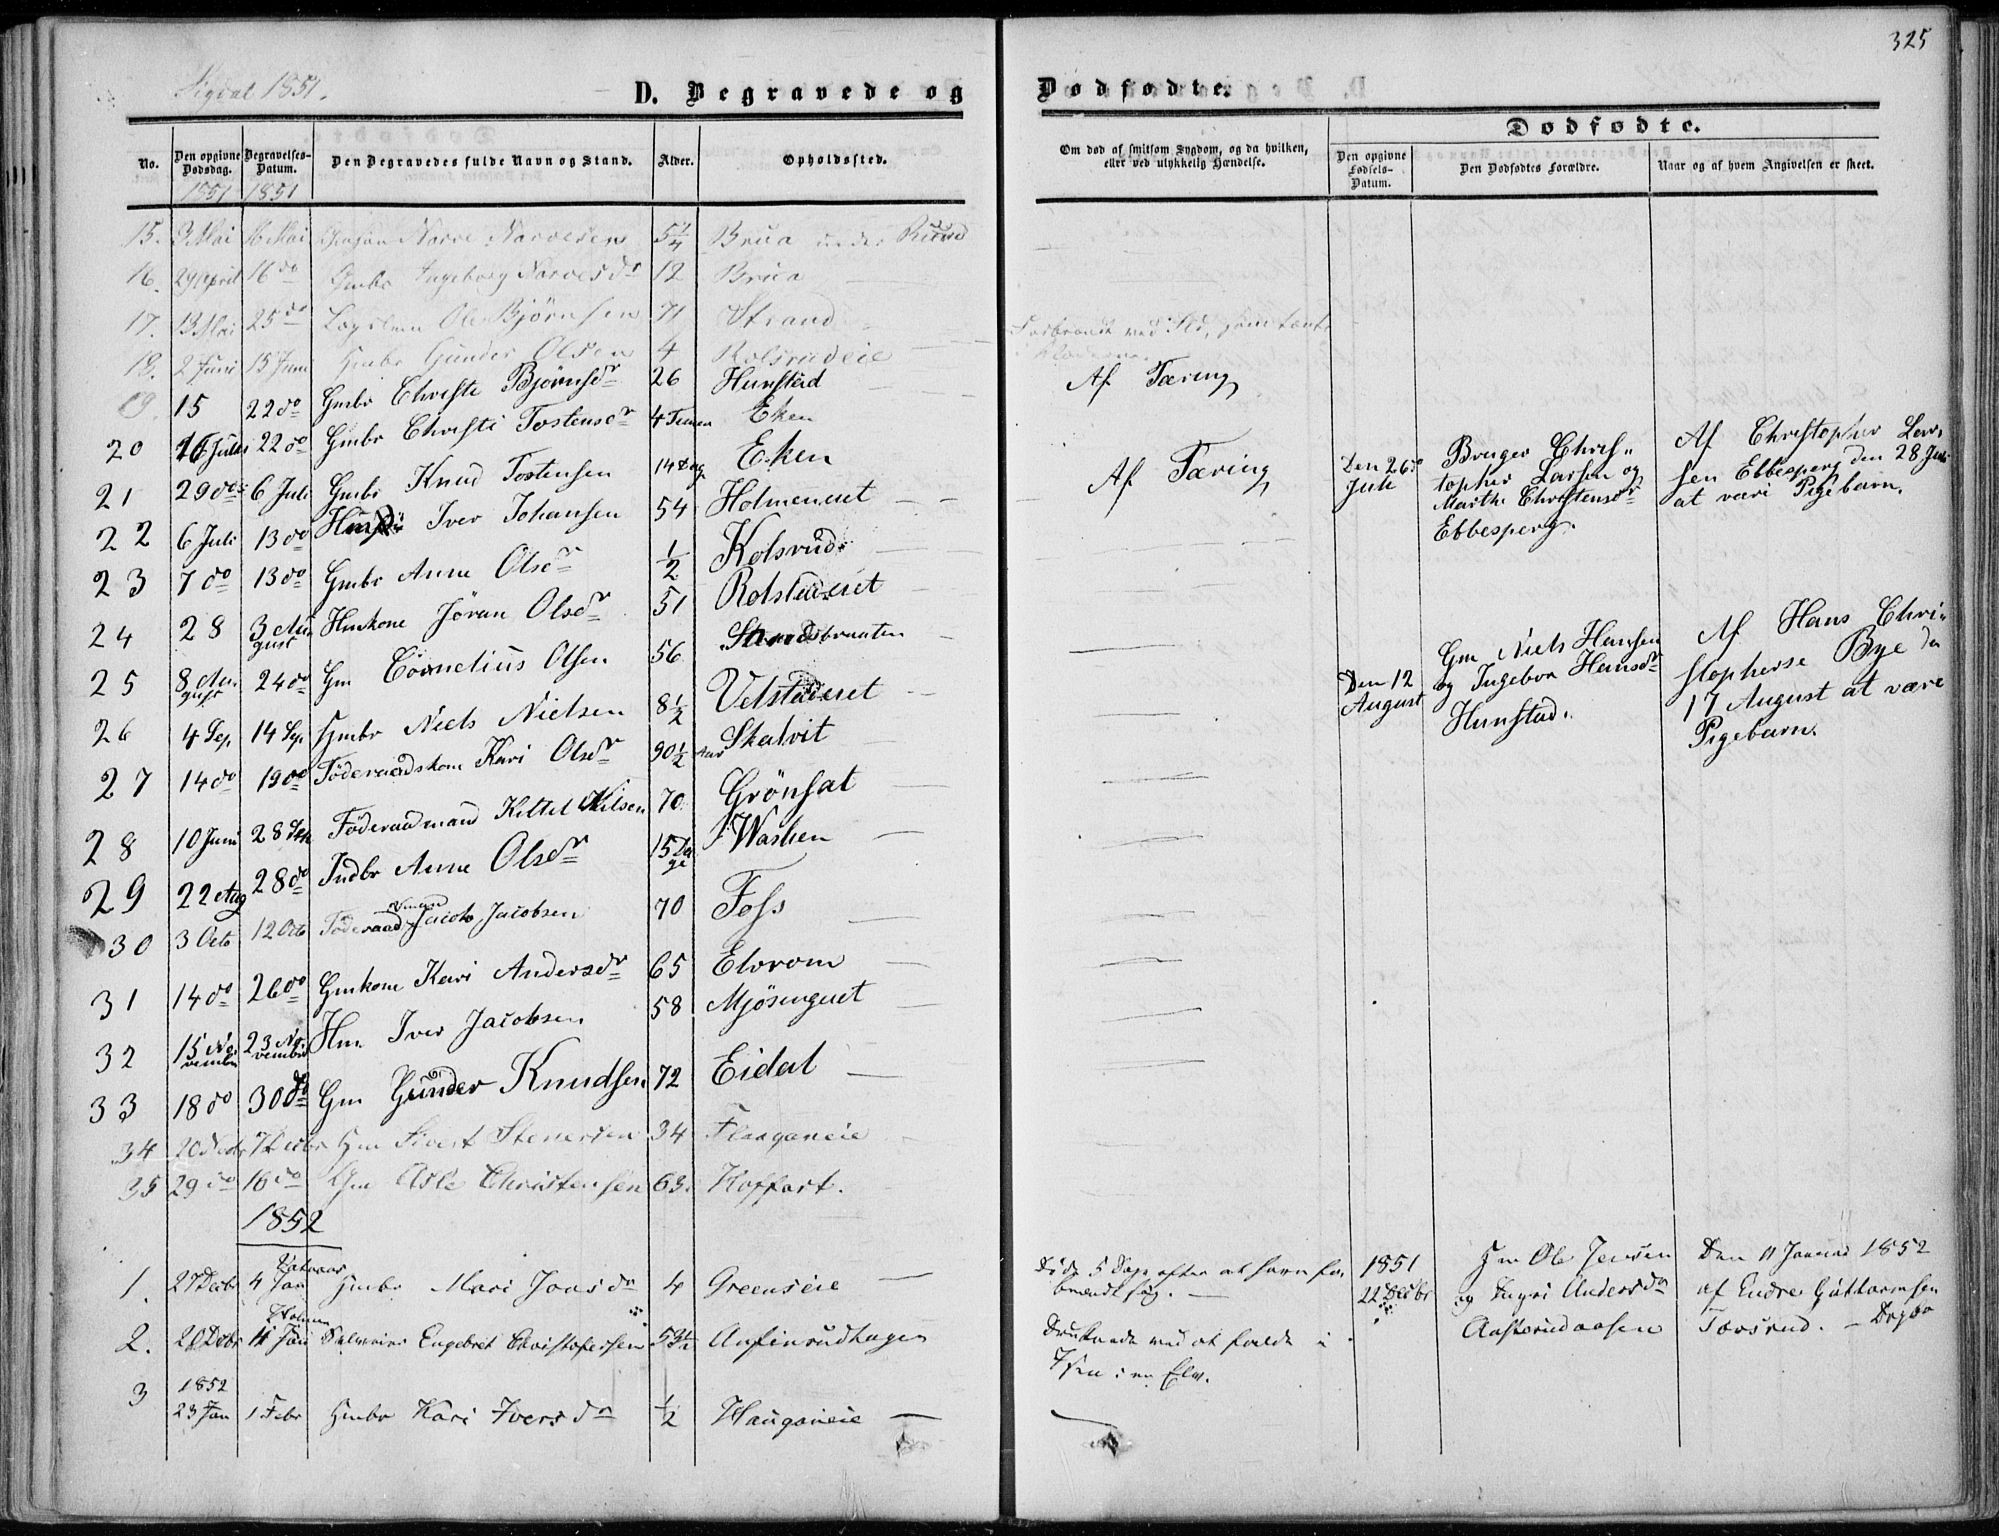 325
Sigdal 1851.
D. Begravede og Dødfødte.
Dødfødte.
No. Den opgivne Dødsdag. Begravelses-Datum. Den Begravedes fulde Navn og Stand. Alder. Opholdssted. Om død af smitsom Sygdom, og da hvilken, eller ved ulykkelig Hændelse. Den opgivne Fødsels-Datum. Den Dødfødtes Forældre. Naar og af hvem Angivelsen er skeet.
1851 1851
15. 3 Mai 16 Mai Narve Narvesen 5 1/4 Brua under Ruud
16. 29 April 16 do Gmbr Ingeborg Narvesdr 12 Brua
17. 13 Mai 25 do Lægslem Ole Bjørnsen 71 Strand
18. 2 Juni 15 Juni Hmbr Gunder Olsen 4 Kolsrudeie Forbrændt ved Ild, som
19. 15 22 do Gmbr Christi Bjørnsdr 26 Hunstad Af Tæring
20 16 22 do Gmbr Christi Tostensdr 4 Eken
21 29 do 6 Juli Gmbr Knud Tostensen 14 Dag Eken Af Tæring
Den 26 Juli Bruger Christopher Larsen og Marthe Christensdr Ebbesperg. Af Christopher Larsen Ebbesperg den 28 Juli at være Pigebarn.
22 6 Juli 13 do Iver Johansen 54 Holmeneret
23 7 do 13 do Gmbr Anne Olsdr 1/2 Kolsrud
24 28 3 August Hmkone Jøran Olsdr 51 Rolstaderet
25 8 August 24 do Gm Cornelius Olsen 56 Strandsbraaten
Den 12 August Gm Niels Hansen og Ingebor Hansdr Hunstad. Af Hans Christopherse Bye den 17 August at være Pigebarn.
26 4 Sep. 14 Sep. Hmbr Niels Nielsen 8 1/2 Velstaderet
27 14 do 19 do Föderaadskone Kari Olsdr 90 1/2 Aar Skalvit
28 10 Juni 28 Sep Föderaadmand Kittel Nilsen 70 Grönhat
29 22 Aug 28 do Indbr Anne Olsdr 15 Dage Washen
30 3 Octo 12 Octo Föderaadsmand Jacob Jacobsen 70 Foss
31 14 do 26 do Gmkone Kari Andersdr 65 Elvrom
32 15 November 23 November Hm. Iver Jacobsen 58 Mjösengeret
33 18 do 30 do Gm Gunder Knudsen 72 Eidal
34 20 7 Decbr Hm Sivert Stenersen 34 Flaaganeie
35 29 do 16 do Gm Asle Christensen 63. Hoffart.
1852
1. 27 Decbr 4 Jan Hmbr Mari Joensdr 4 Greenseie Döde 5 Dage efter at have forbrændt sig.
1851 22 Decbr Hm Ole Jensen og Ingri Andersdr Aasterudaasen Den 11 Januar 1852 af Endre Guttormsen Tovsrud.
Holmen
2. 20 Decbr 11 Jan Engebret Christofersen 53 1/2 Anfinrudhagen Druknede ved at falde i Isen i en Elv.
1852
3 23 Jan 1 Febr Hmbr Kari Iversdr 1/2 Hauganeie